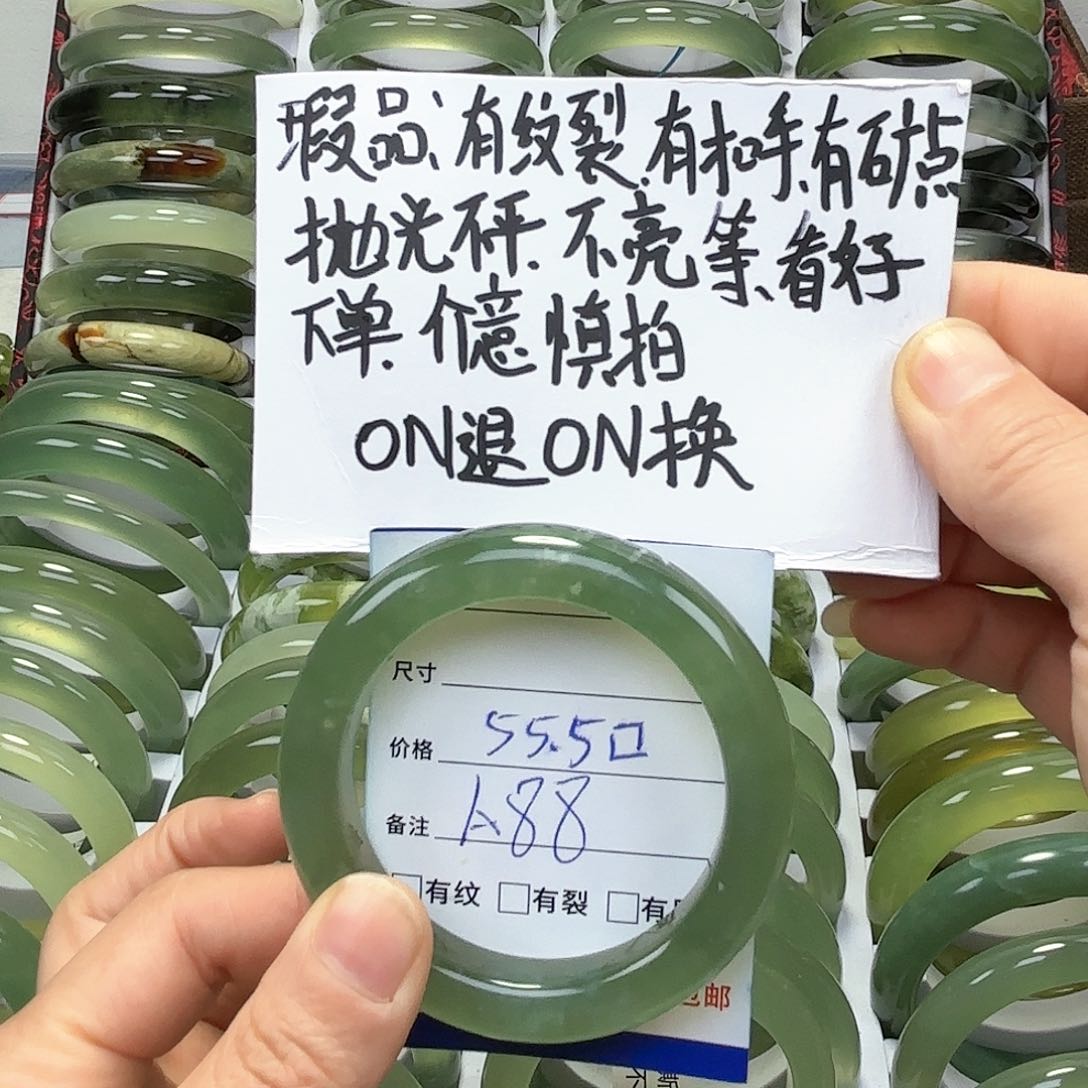 瑕品、有纹裂.有扣手.有矿点
抛光砰.不亮等、看好
下单.介意慎拍
ON退ON换
尺寸
价格 55.5口
备注
有纹 有裂 有
包邮